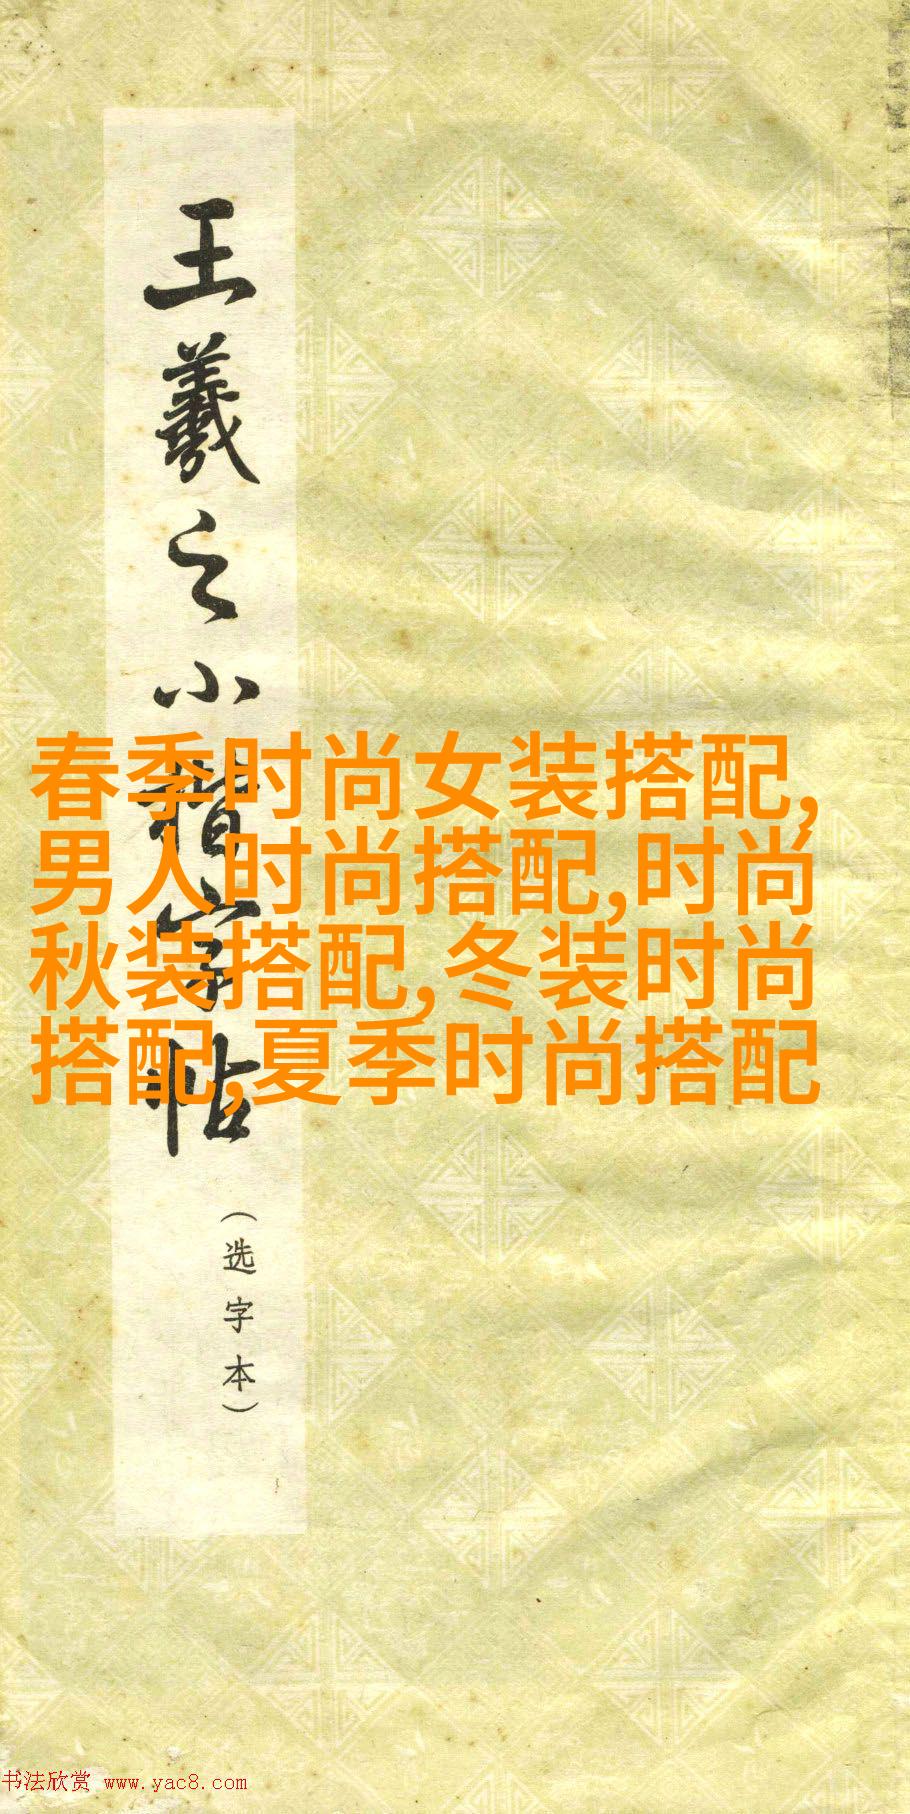 王羲之小楷字帖
（选字本）
春季时尚女装搭配,
男人时尚搭配,时尚
秋装搭配,冬装时尚
搭配,夏季时尚搭配
书法欣赏 www.yac8.com